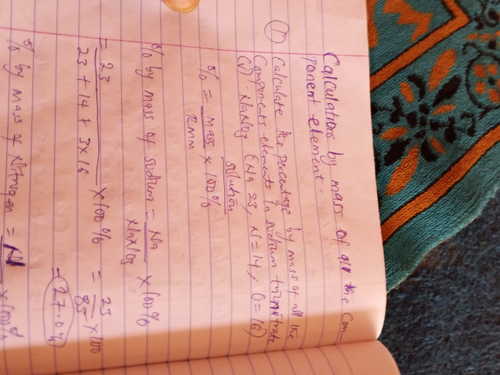 Calculations by mass of all the Com-
ponent element:
① Calculate the percentage by mass of all the
Components elements in sodium
(a) NaNO3 (Na = 23, N = 14, O = 16)
solution
% = mass / RMM × 100%
% by mass of sodium = Na / NaNO3 × 100%
= 23 / 23 + 14 + 3×16 × 100% = 23 / 85 × 100
= 27.0%
% by mass of Nitrogen = N × 100%